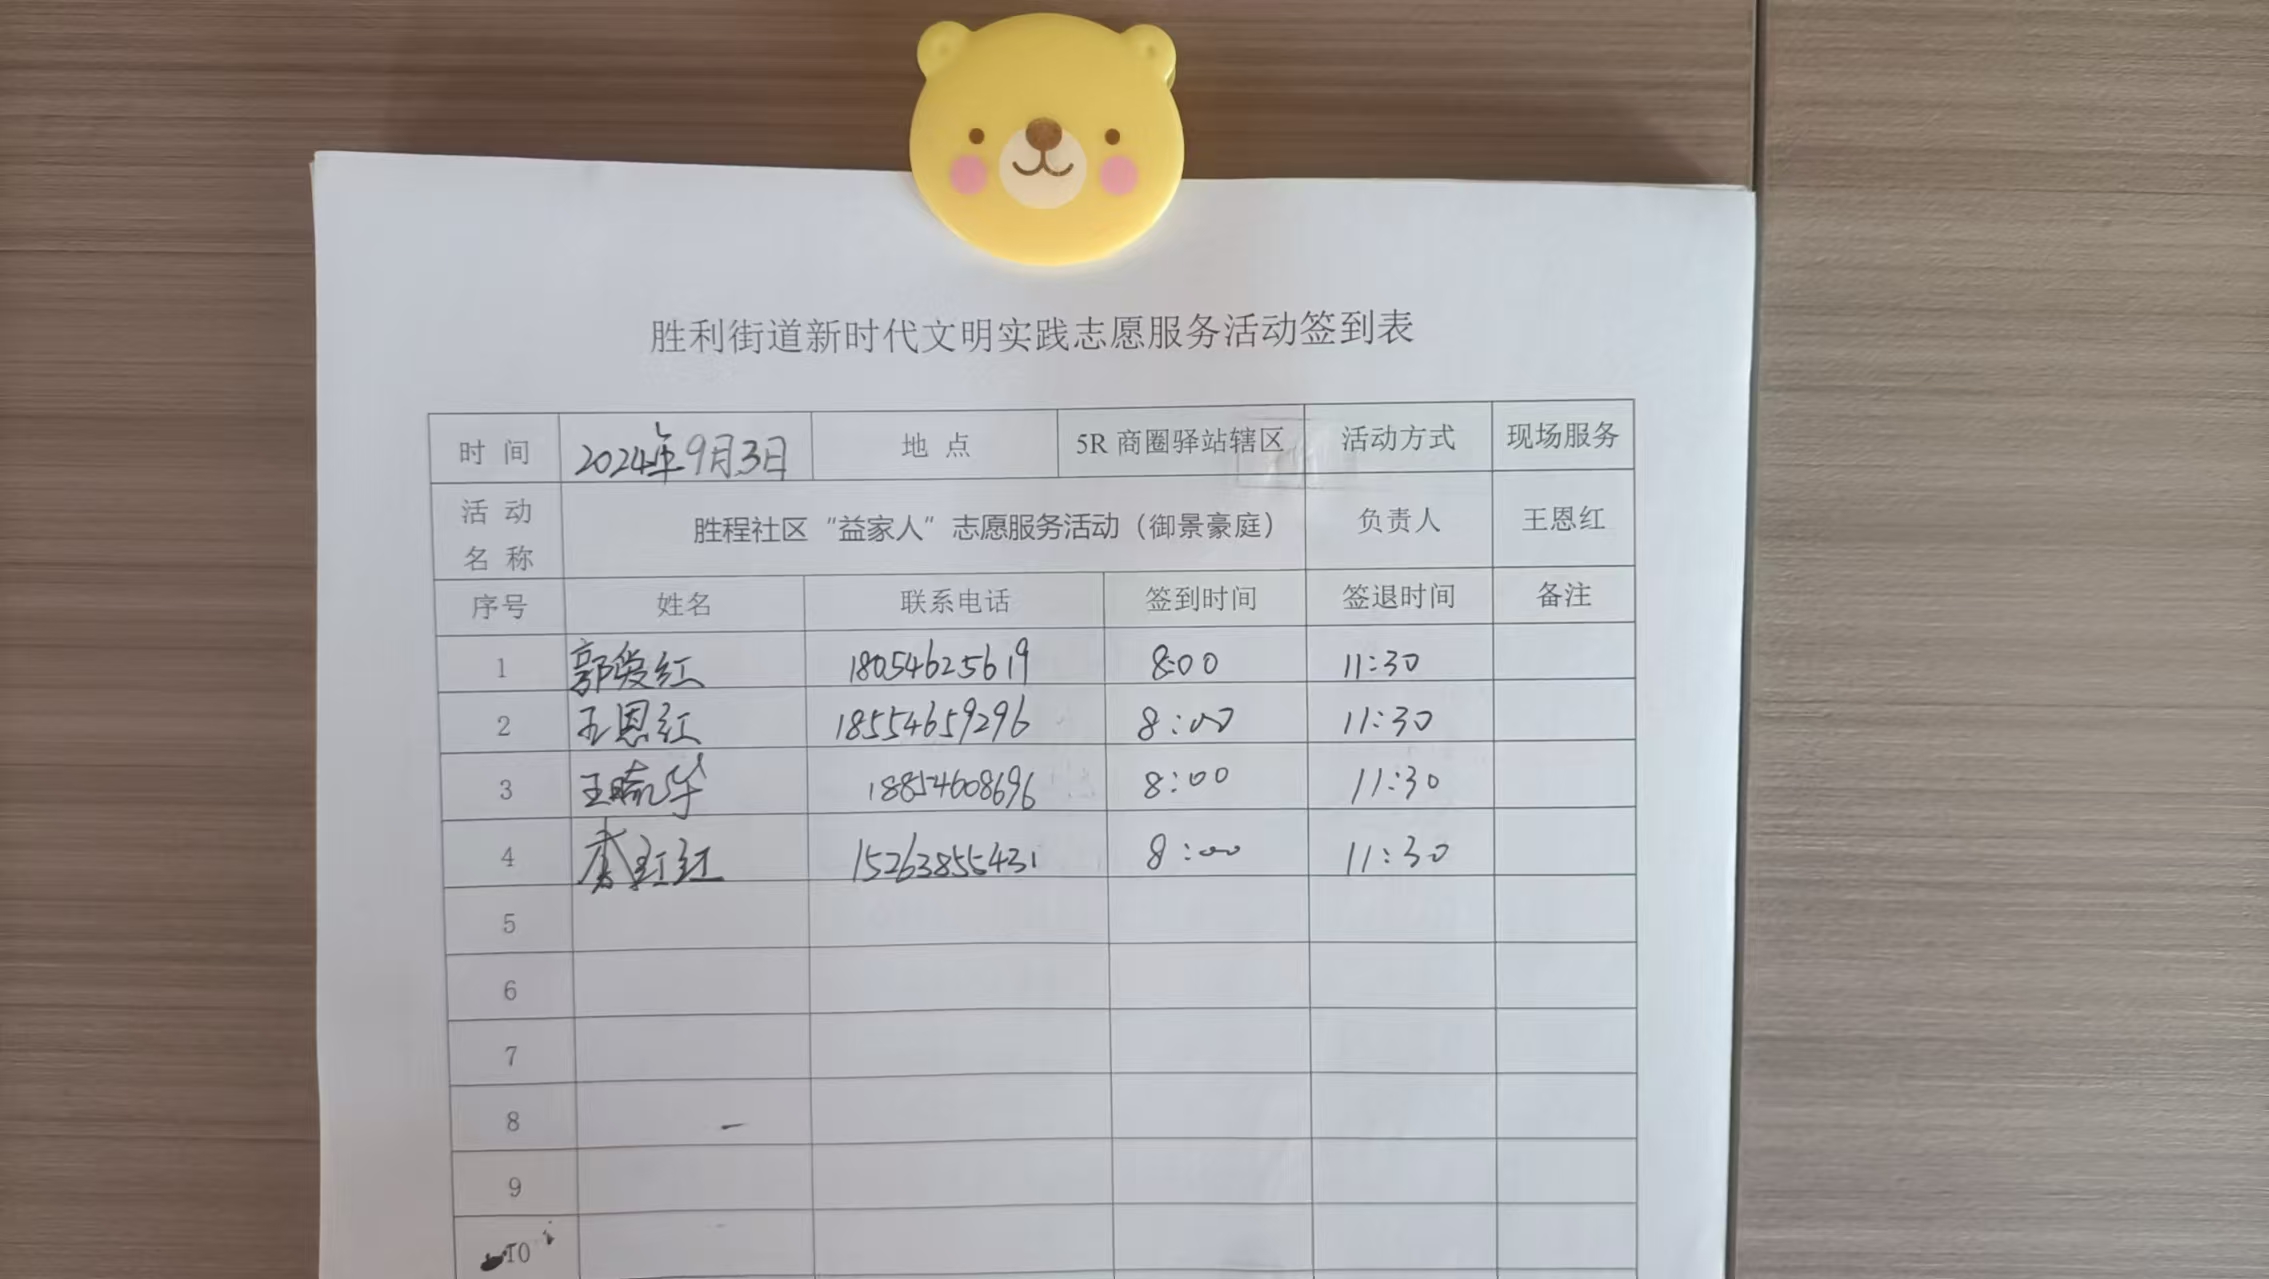 胜利街道新时代文明实践志愿服务活动签到表
时 间 2024年9月3日 地 点 5R 商圈驿站辖区 活动方式 现场服务
活 动
名 称 胜程社区“益家人”志愿服务活动（御景豪庭） 负责人 王恩红
序号 姓名 联系电话 签到时间 签退时间 备注
1 郭爱红 18054625619 8:00 11:30
2 王恩红 18554659296 8:00 11:30
3 王晓华 18854608696 8:00 11:30
4 红红 15263855431 8:00 11:30
5
6
7
8
9
10